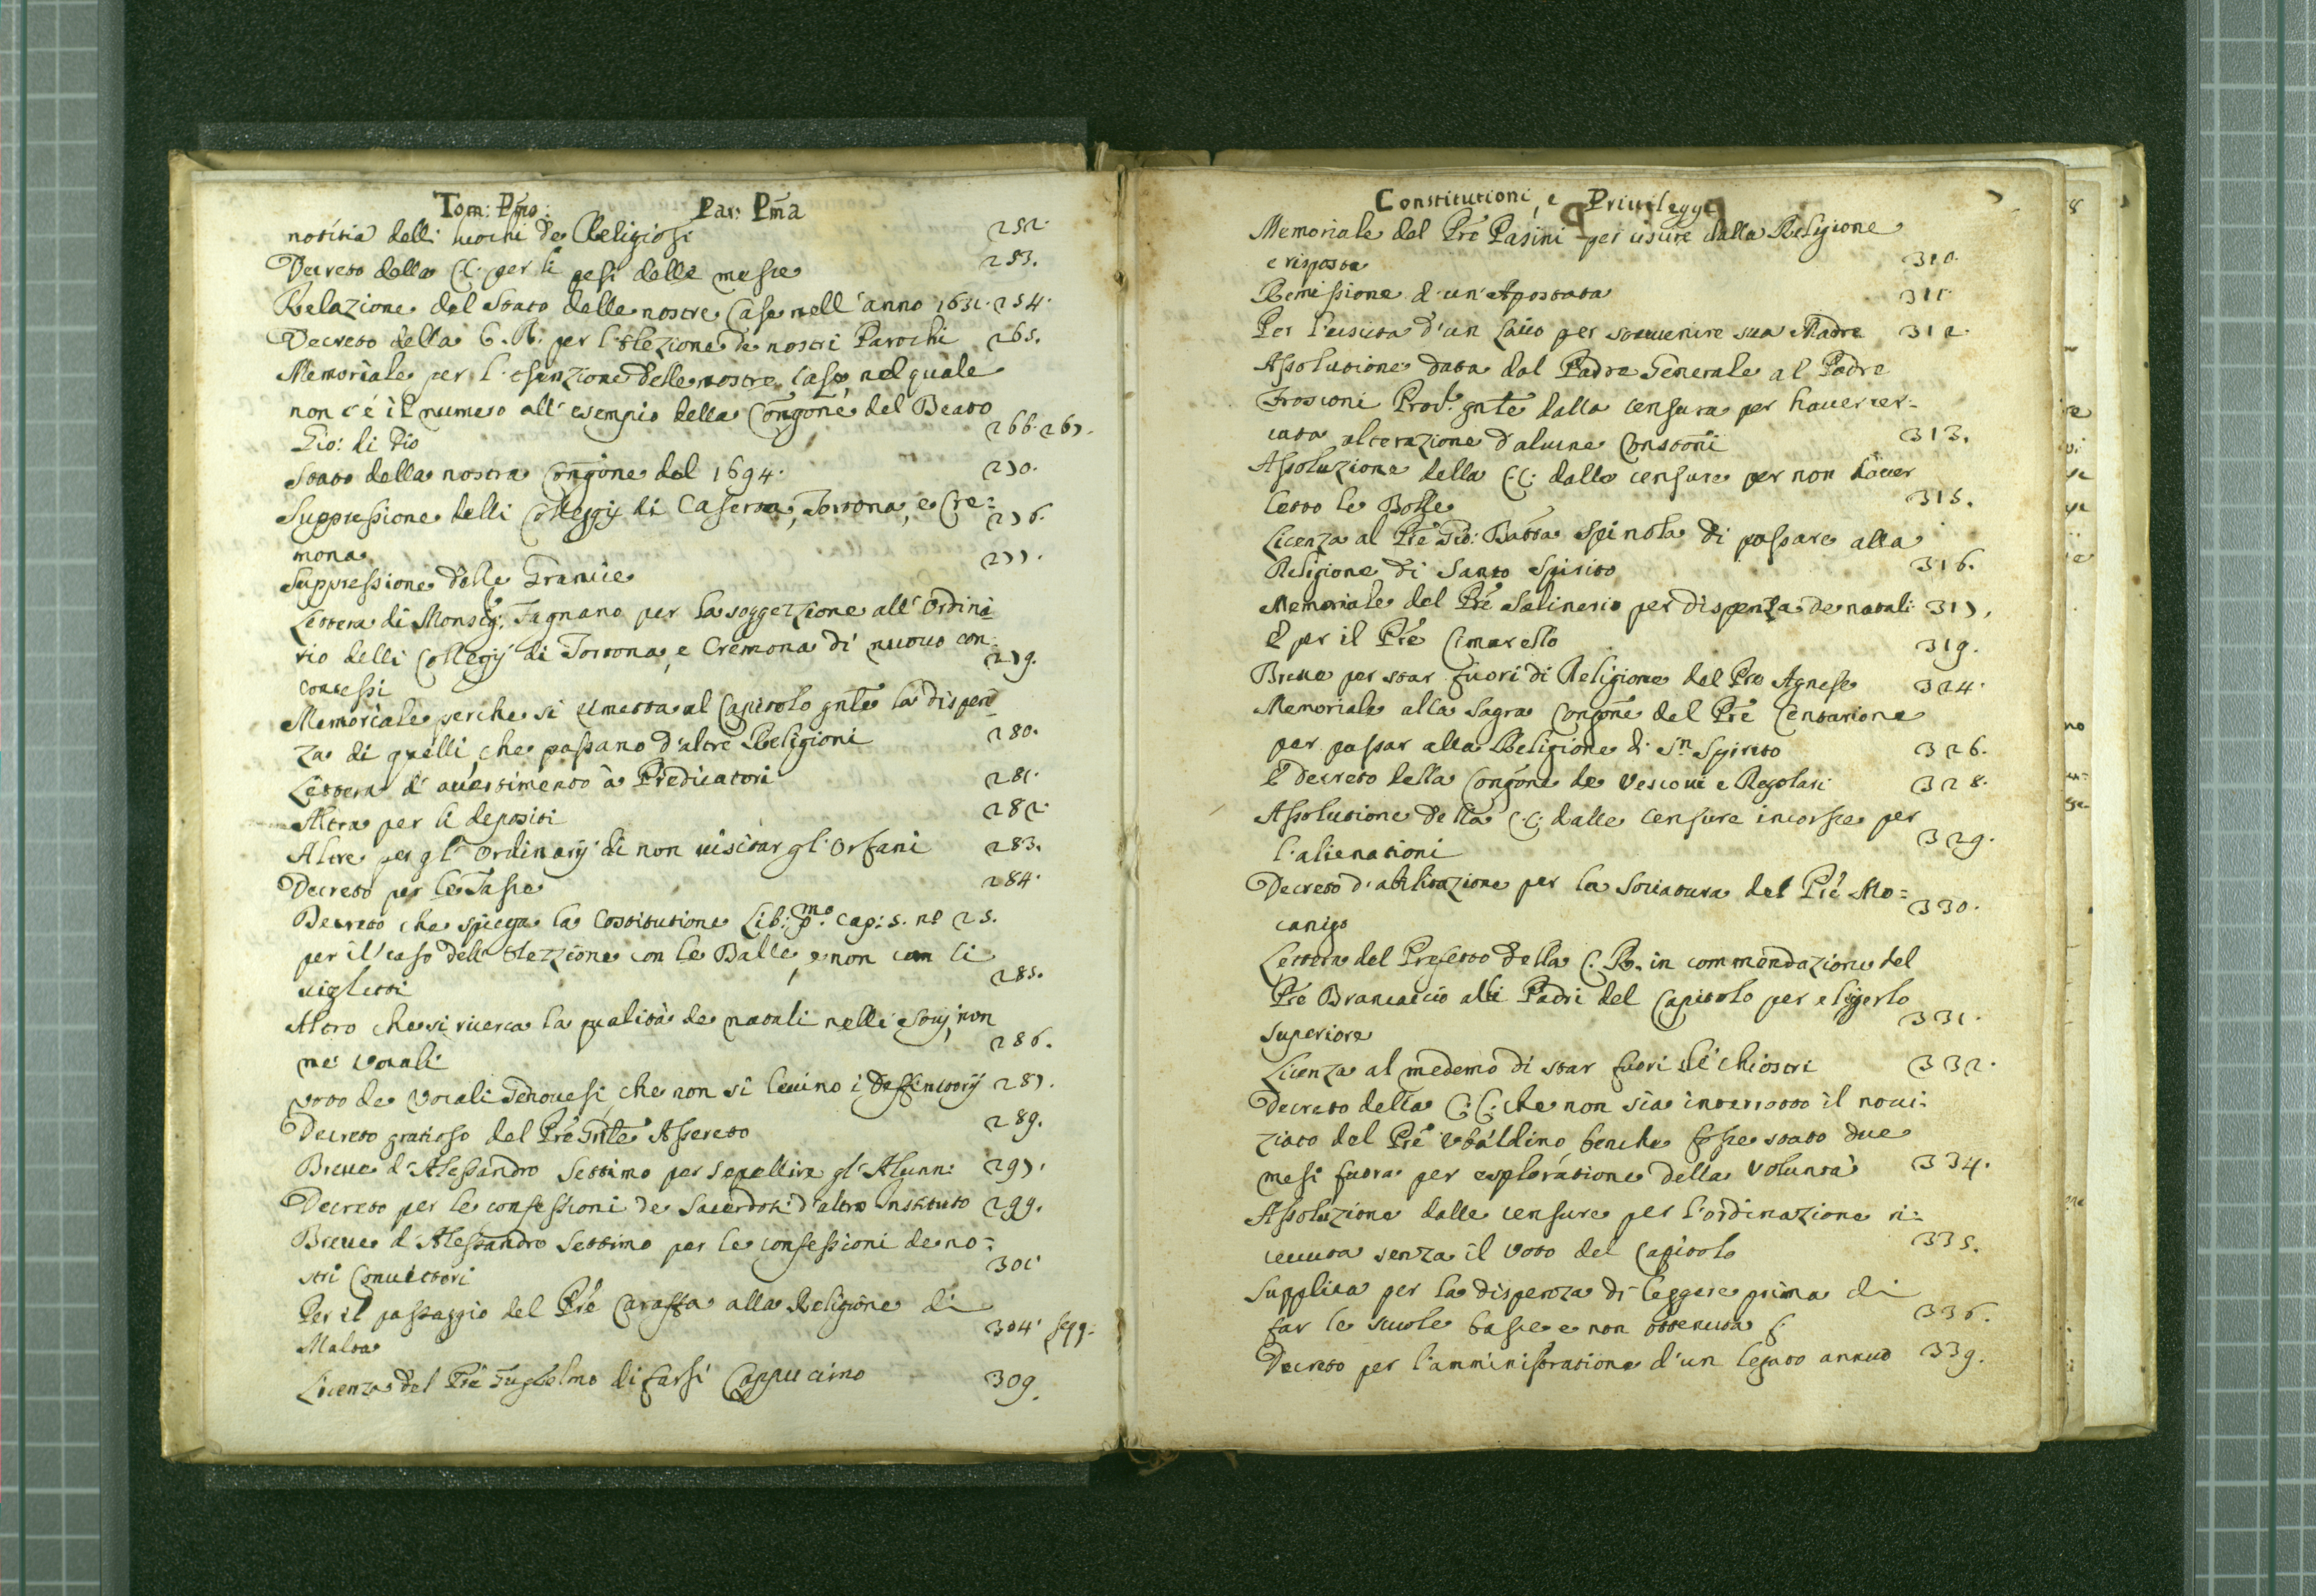 Tom: Pmo: Par: Pma
notitia delli luochi de Religiosi 252.
Decreto della C.C. per li pesi delle messe 253.
Relazione del Stato delle nostre Case nell'anno 1631. 254.
Decreto della C. R. per l'elezione de nostri Parochi 265.
Memoriale per l'esenzione delle nostre case, nel quale
non c'é il numero all'esempio della Congone del Beato
Gio: di Dio 266. 267.
Stato della nostra Congone del 1694. 270.
Suppressione delli Collegij di Caserta, Tortona, e Cre= 276.
mona
Suppressione delle Grancie 277.
Lettera di Monsig. Fagnano per la soggezzione all'Ordina
rio delli Collegij di Tortona, e Cremona di nuovo con=
cessi 279.
Memoriale perche si rimetta al Capitolo gnte la dispen=
za di quelli, che passano d'altre Religioni 280.
Lettera d'avertimento à Predicatori 281.
Altra per li depositi 282.
Altre per gl'Ordinarij di non visitar gl'Orfani 283.
Decreto per le Tasse 284.
Decreto che spiega la Costitutione Lib: pmo. cap: 5. no 25.
per il caso dell'Elezzione con le Balle, e non con li
viglietti 285.
Altro che si ricerca la qualità de natali nelli Socij, non
ne vocali 286.
voto de Vocali Genovesi, che non si levino i Deffinitorij 287.
Decreto gratioso del Pre Gnle Assereto 289.
Breve d'Alessandro Settimo per sepellire gl'Alunni 297.
Decreto per le confessioni de Sacerdoti d'altro Instituto 299.
Breve d'Alessandro Settimo per le confessioni de no=
stri Convittori 301
Per il passaggio del Pre Caraffa alla Religione di
Malta 304. segg.
Licenza del Pre Guglielmo di farsi Cappucino 309.
Constitutioni, e Privileggi 7
Memoriale del Pre Pasini per uscire dalla Religione
e risposta 310.
Remissione d'un'Apostata 311.
Per l'uscita d'un Laico per sovvenire sua Madre 312.
Assolutione data dal Padre Generale al Padre
Froscioni Prov. gnte dalla censura per haver cer=
cata alterazione d'alcune Constoni 313.
Assoluzione della C.C. dalle censure per non haver
letto le Bolle 315.
Licenza al Pre Gio: Batta Spinola di passare alla
Religione di Santo Spirito 316.
Memoriale del Pre Salinerio per dispenza de natali 317.
E per il Pre Cimarello 319.
Breve per star fuori di Religione del Pre Agnese 324.
Memoriale alla Sagra Congone del Pre Centurione
per passar alla Religione di Sn Spirito 326.
E Decreto della Congone de Vescovi e Regolari 328.
Assolutione della C.C. dalle censure incorse per
l'alienationi 329.
Decreto d'abilitazione per la Sociatura del Pre Mo=
canigo 330.
Lettera del Prefetto della C. R. in commendazione del
Pre Brancaccio alli Padri del Capitolo per eligerlo
superiore 331.
Licenza al medemo di star fuori de' chiostri 332.
Decreto della C.C. che non sia interrotto il novi=
ziato del Pre Ubaldino, benche fosse stato due
mesi fuora per esploratione della Voluntà 334.
Assoluzione dalle censure per l'ordinazione ri=
cevuta senza il voto del Capitolo 335.
Supplica per la dispenza di leggere prima di
far le scuole basse e non ottenuta 336.
Decreto per l'amministratione d'un legato annuo 339.